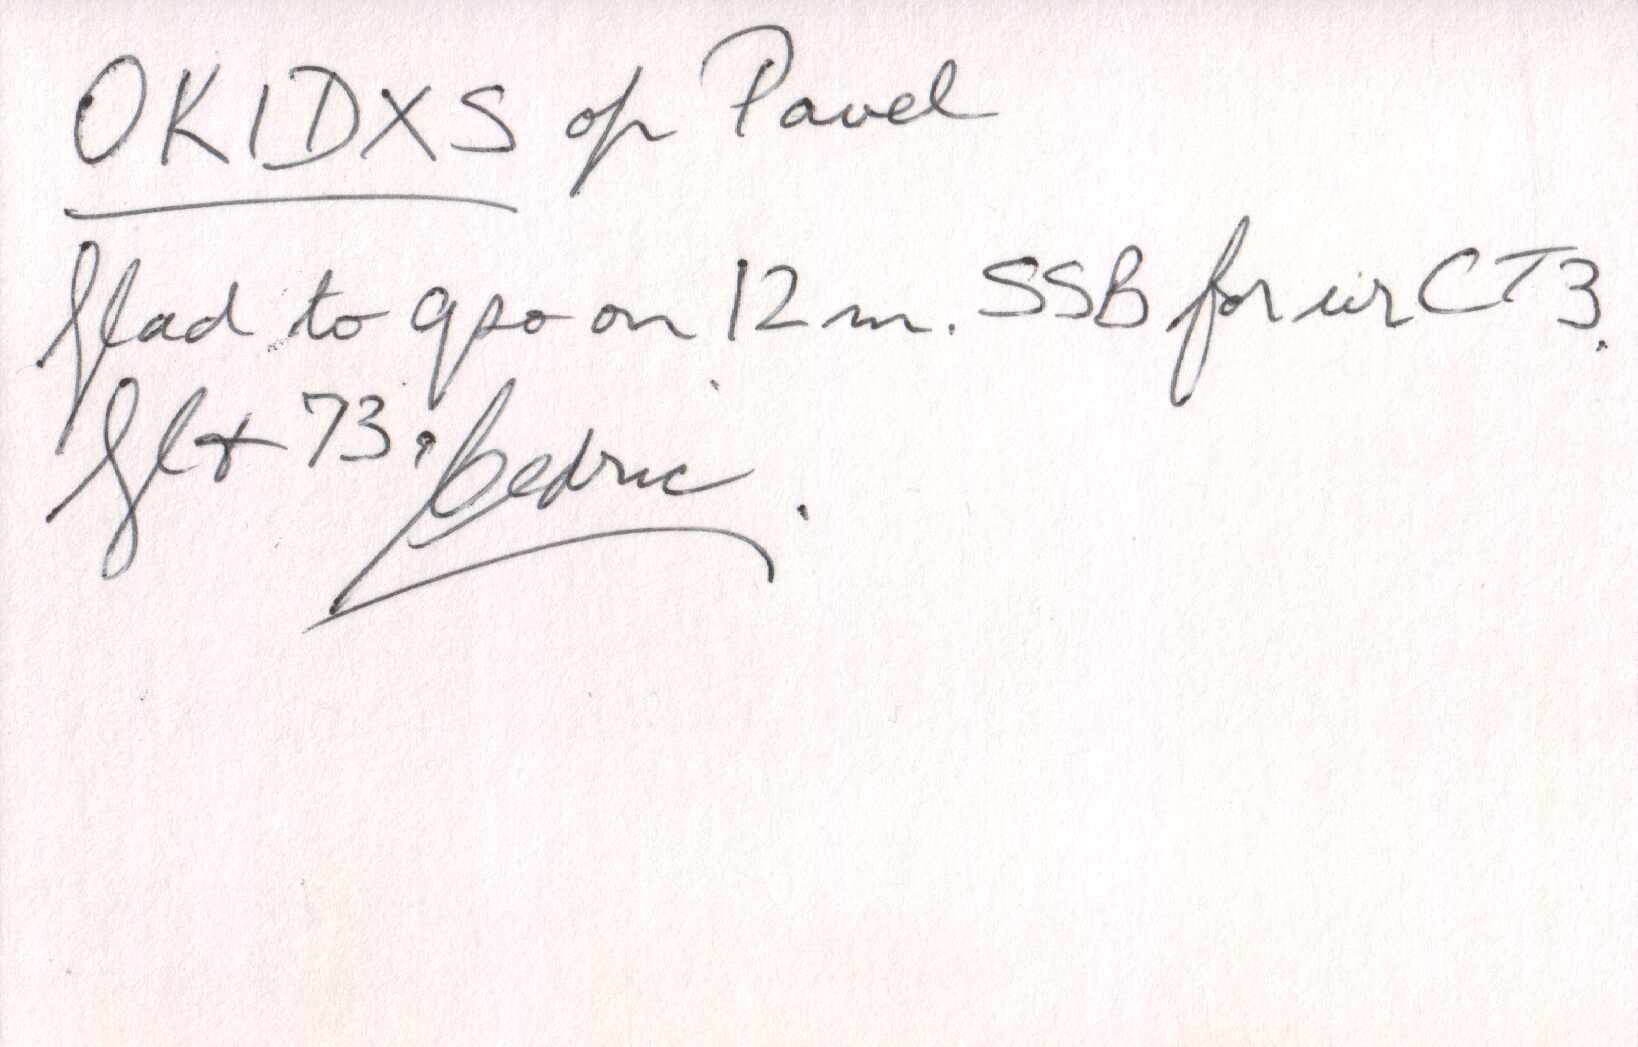 OK1DXS op Pavel
Glad to qso on 12 m. SSB for ur CT3.
Gl + 73, Cedric.